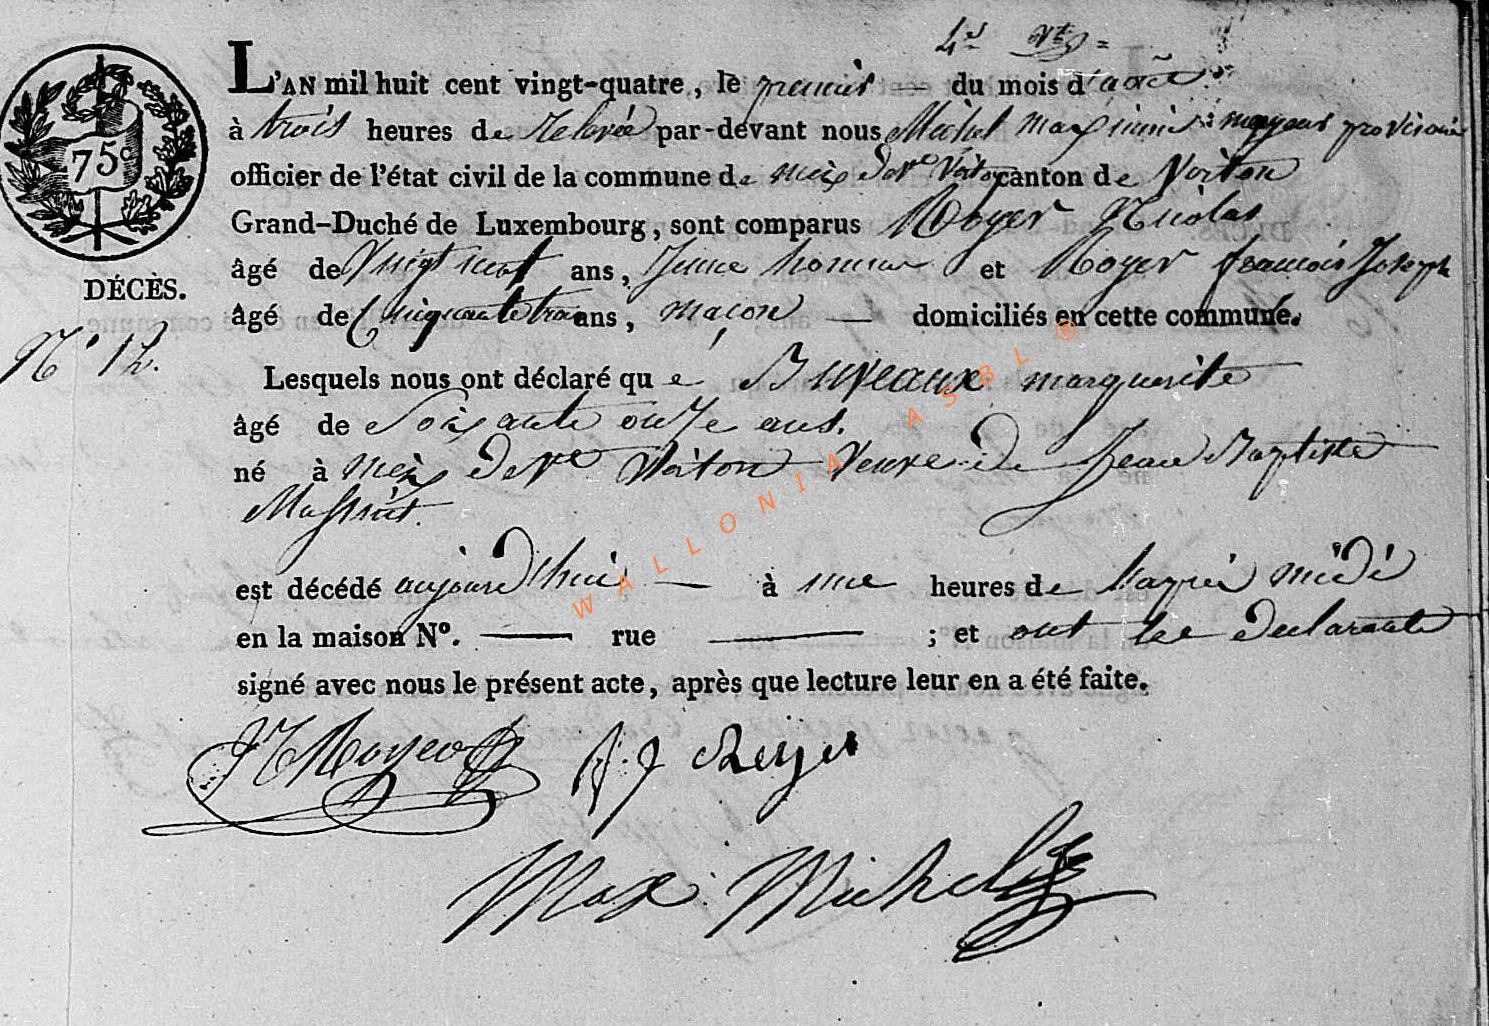 L'AN mil huit cent vingt-quatre, le premier — du mois d'août
à trois heures de relevée par-devant nous Michel maximin mayeur provisoire
officier de l'état civil de la commune de meix devt Virton canton de Virton
Grand-Duché de Luxembourg, sont comparus Royer Nicolas
âgé de Vingt neuf ans, Jeune homme et Royer francois Joseph
75c
DÉCÈS.
âgé de Cinquante trois ans, maçon — domiciliés en cette commune.
N° 12.
Lesquels nous ont déclaré que Bureaux marguerite
âgé de Soixante onze ans.
né à meix devt Virton Veuve de Jean Baptiste
Massiut.
est décédé aujourd'hui — à une heures de l'après midi
en la maison N°. — rue — ; et ont les declarants
signé avec nous le présent acte, après que lecture leur en a été faite.
N Royer f. j Royer
Max Michel
WALLONIA ASBL ®